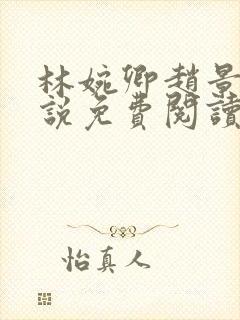 林婉卿趙景
說免費閱讀
怡真人